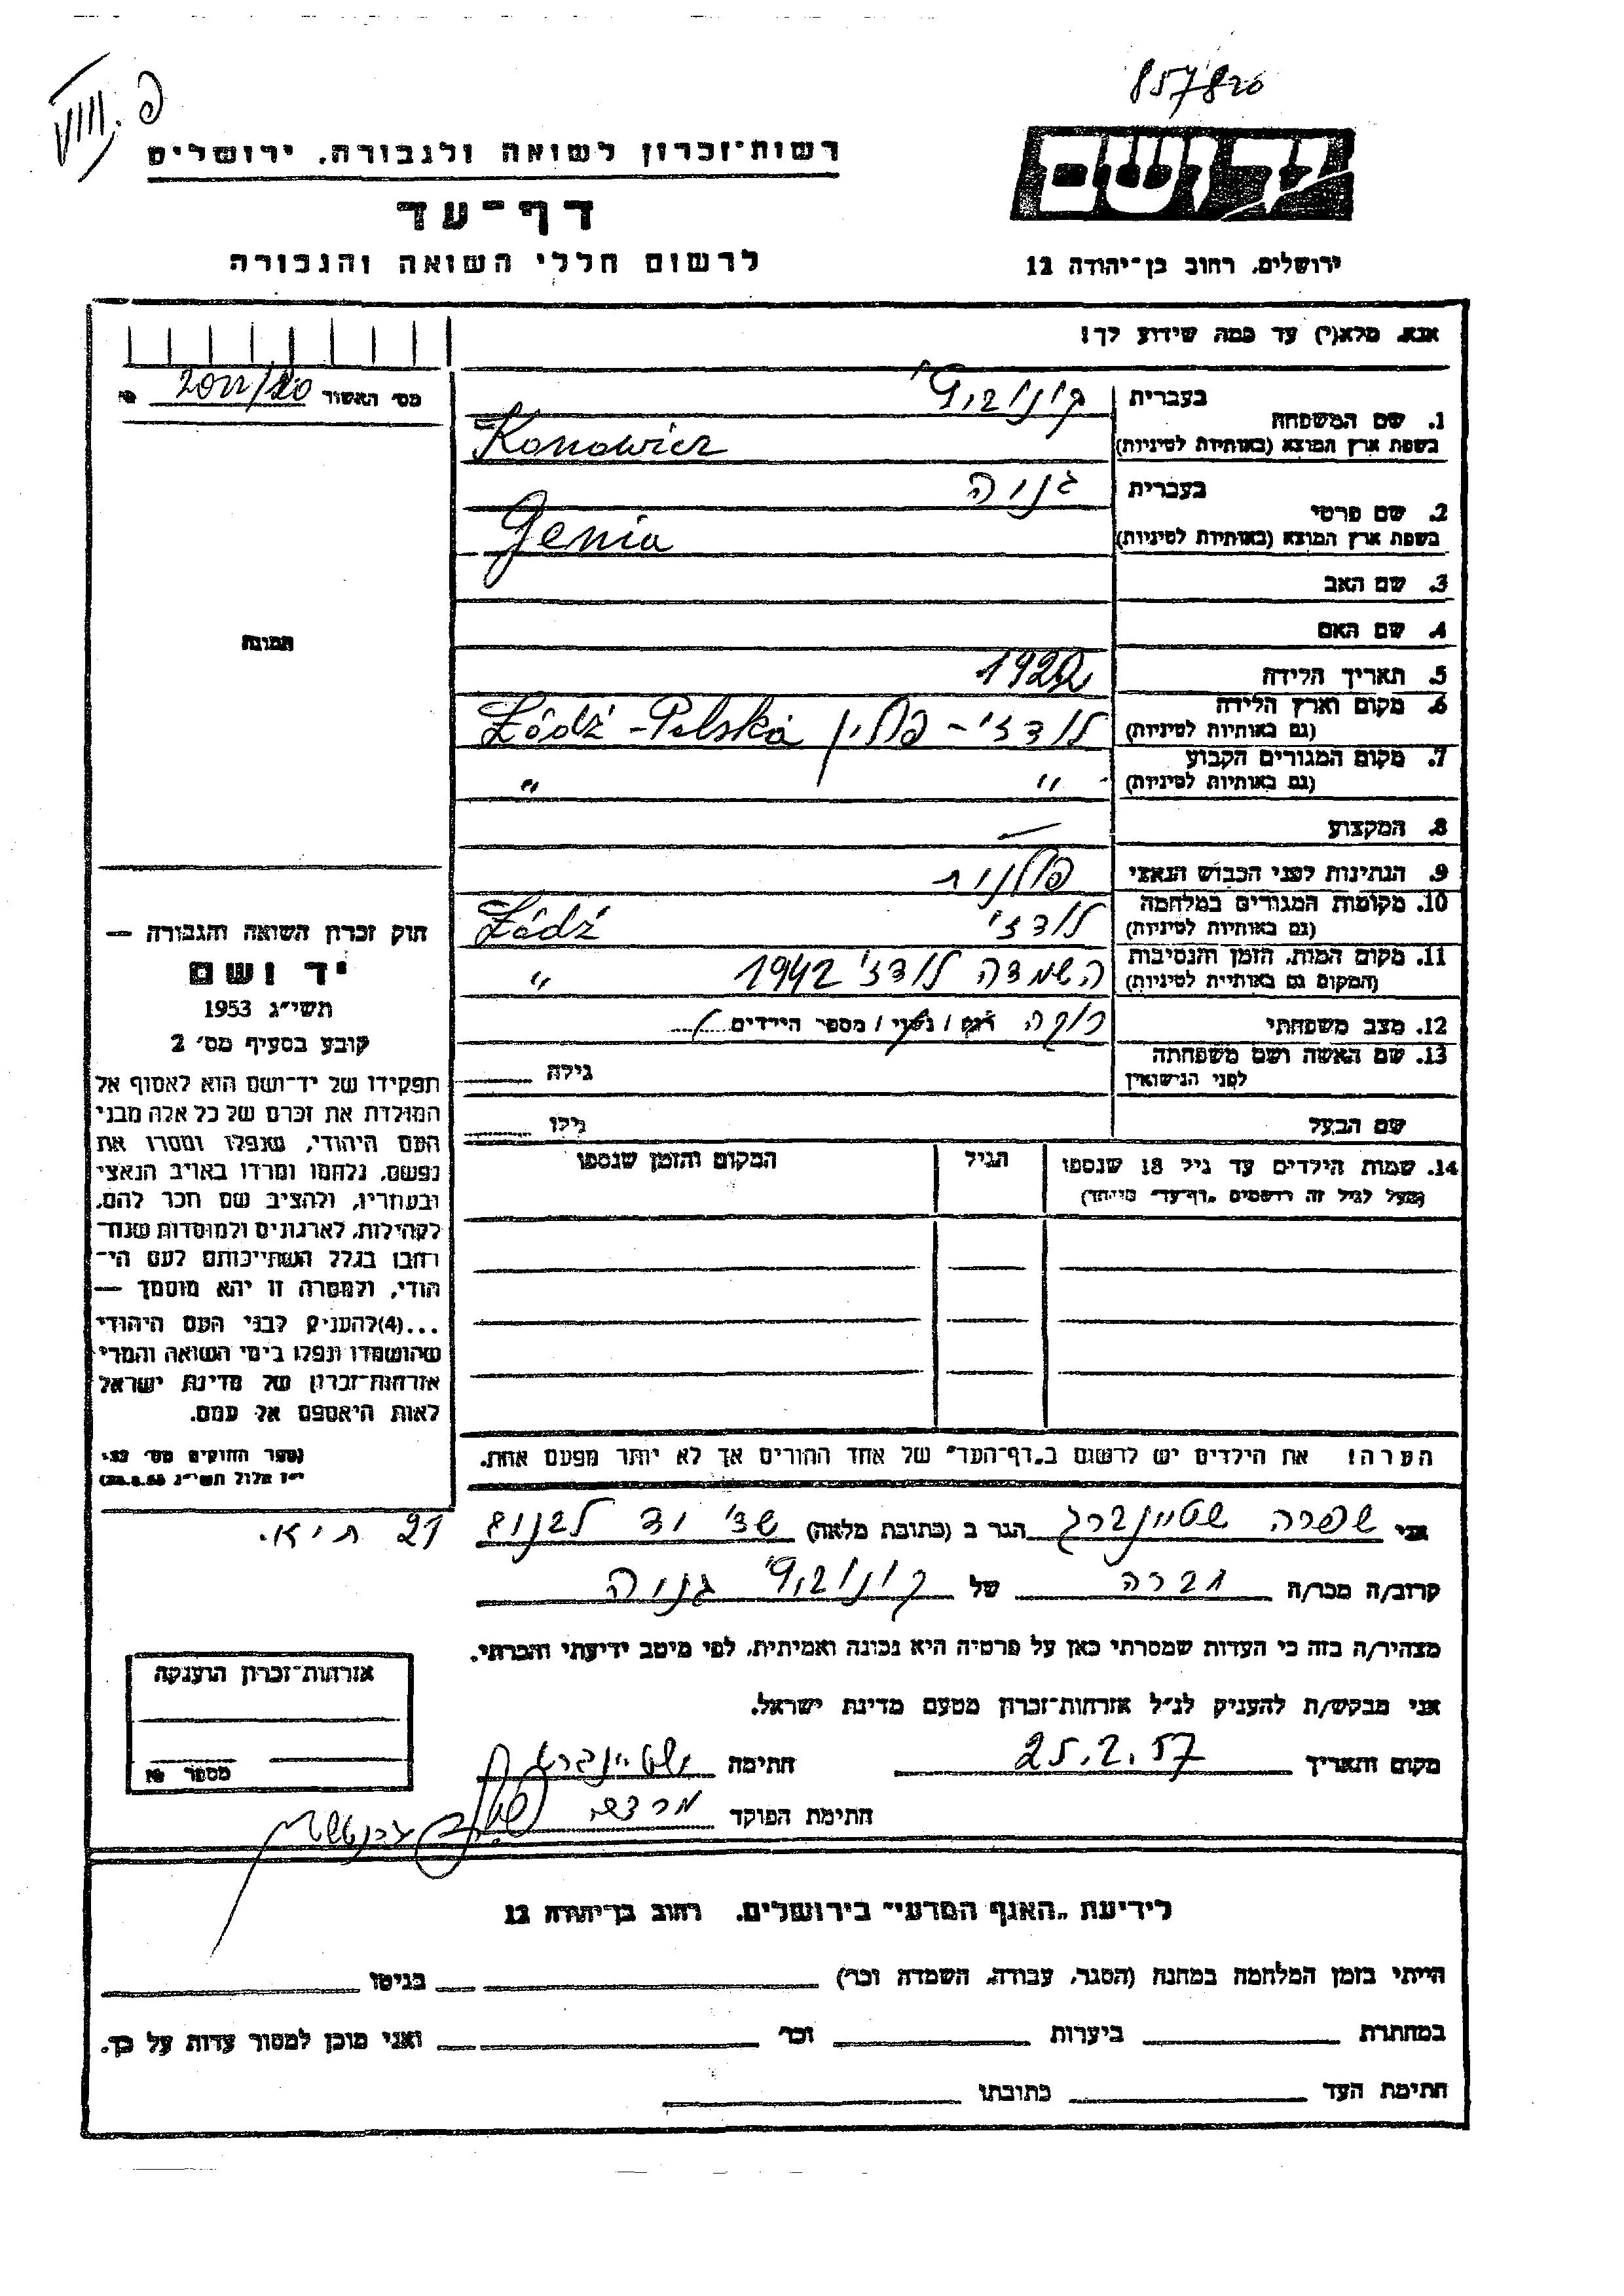 857820
פ. VIII
רשות־זכרון לשואה ולגבורה. ירושלים
יד ושם
דף־עד
לרשום חללי השואה והגבורה
ירושלים, רחוב בן־יהודה 12
אנא, מלא(י) עד כמה שידוע לך!
מס׳ האשור 20 / №
בעברית קונוביץ׳
1. שם המשפחה
בשפת ארץ המוצא (באותיות לטיניות) Konowicz
בעברית גניה
2. שם פרטי
בשפת ארץ המוצא (באותיות לטיניות) Genia
3. שם האב
4. שם האם
תמונה
5. תאריך הלידה 1922
6. מקום וארץ הלידה לודז׳ - פולין Łódź - Polska
(גם באותיות לטיניות)
7. מקום המגורים הקבוע " "
(גם באותיות לטיניות)
8. המקצוע —
9. הנתינות לפני הכבוש הנאצי פולנית
10. מקומות המגורים במלחמה לודז׳ Łódź
(גם באותיות לטיניות)
11. מקום המות, הזמן והנסיבות השמדה לודז׳ 1942 "
(המקום גם באותיות לטיניות)
12. מצב משפחתי רוקה רוק / נשוי / מספר הילדים
13. שם האשה ושם משפחתה גילה
לפני הנישואין
שם הבעל גילו
14. שמות הילדים עד גיל 18 שנספו הגיל המקום והזמן שנספו
(מעל לגיל זה רושמים „דף־עד״ מיוחד)
חוק זכרון השואה והגבורה —
יד ושם
תשי״ג 1953
קובע בסעיף מס׳ 2
תפקידו של יד־ושם הוא לאסוף אל
המולדת את זכרם של כל אלה מבני
העם היהודי, שנפלו ומסרו את
נפשם, נלחמו ומרדו באויב הנאצי
ובעוזריו, ולהציב שם וזכר להם,
לקהילות, לארגונים ולמוסדות שנח־
רבו בגלל השתייכותם לעם הי־
הודי, ולמטרה זו יהא מוסמך —
...(4)להעניק לבני העם היהודי
שהושמדו ונפלו בימי השואה והמרי
אזרחות־זכרון של מדינת ישראל
לאות היאספם אל עמם.
(ספר החוקים מס׳ 132,
י״ז אלול תשי״ג 28.8.53)
הערה! את הילדים יש לרשום ב„דף־העד״ של אחד ההורים אך לא יותר מפעם אחת.
אני שפרה שטיינברג הגר ב (כתובת מלאה) 21 ת״א.
קרוב/ה מכר/ה חברה של קונוביץ׳ גניה
מצהיר/ה בזה כי העדות שמסרתי כאן על פרטיה היא נכונה ואמיתית, לפי מיטב ידיעתי והכרתי.
אני מבקש/ת להעניק לנ״ל אזרחות־זכרון מטעם מדינת ישראל.
מקום ותאריך 25.2.57 חתימה שטיינברג
חתימת הפוקד
אזרחות־זכרון הוענקה
מספר №
לידיעת „האגף המדעי״ בירושלים, רחוב בן־יהודה 12
הייתי בזמן המלחמה במחנה (הסגר, עבודה, השמדה וכו׳) בגיטו
במחתרת ביערות וכו׳ ואני מוכן למסור עדות על כך.
חתימת העד כתובתו